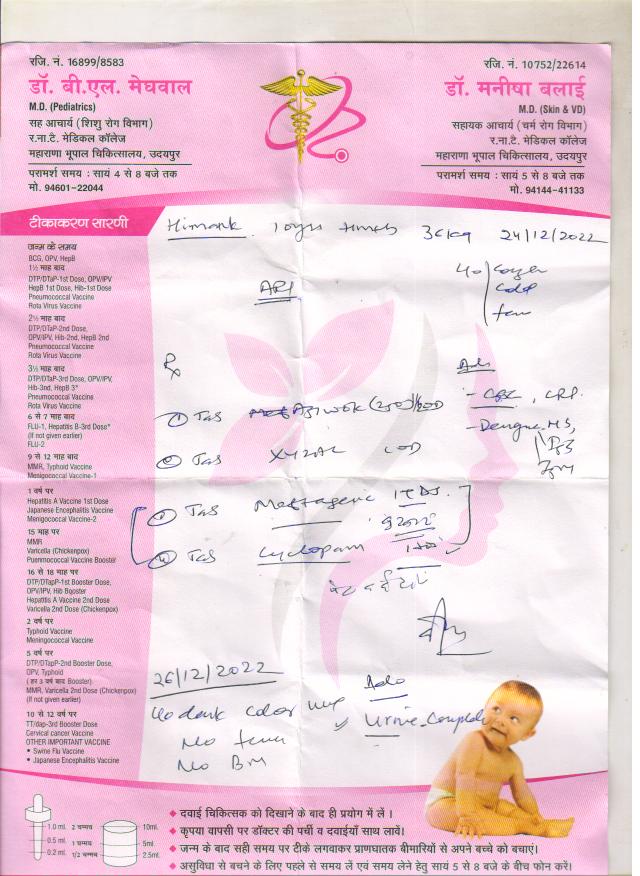 रजि. नं. 16899/8583
डॉ. बी.एल. मेघवाल
M.D. (Pediatrics)
सह आचार्य (शिशु रोग विभाग)
र.ना.टै. मेडिकल कॉलेज
महाराणा भूपाल चिकित्सालय, उदयपुर
परामर्श समय : सायं 4 से 8 बजे तक
मो. 94601-22044
रजि. नं. 10752/22614
डॉ. मनीषा बलाई
M.D. (Skin & VD)
सहायक आचार्य (चर्म रोग विभाग)
र.ना.टै. मेडिकल कॉलेज
महाराणा भूपाल चिकित्सालय, उदयपुर
परामर्श समय : सायं 5 से 8 बजे तक
मो. 94144-41133
टीकाकरण सारणी
जन्म के समय
BCG, OPV, HepB
1½ माह बाद
DTP/DTaP-1st Dose, OPV/IPV
HepB 1st Dose, Hib-1st Dose
Pneumococcal Vaccine
Rota Virus Vaccine
2½ माह बाद
DTP/DTaP-2nd Dose,
OPV/IPV, Hib-2nd, HepB 2nd
Pneumococcal Vaccine
Rota Virus Vaccine
3½ माह बाद
DTP/DTaP-3rd Dose, OPV/IPV,
Hib-3nd, HepB 3*
Pneumococcal Vaccine
Rota Virus Vaccine
6 से 7 माह बाद
FLU-1, Hepatitis B-3rd Dose*
(If not given earlier)
FLU-2
9 से 12 माह बाद
MMR, Typhoid Vaccine
Menigococcal Vaccine-1
1 वर्ष पर
Hepatitis A Vaccine 1st Dose
Japanese Encephalitis Vaccine
Menigococcal Vaccine-2
15 माह पर
MMR
Varicella (Chickenpox)
Puenmococcal Vaccine Booster
16 से 18 माह पर
DTP/DTapP-1st Booster Dose,
OPV/IPV, Hib Booster
Hepatitis A Vaccine 2nd Dose
Varicella 2nd Dose (Chickenpox)
2 वर्ष पर
Typhoid Vaccine
Meningococcal Vaccine
5 वर्ष पर
DTP/DTapP-2nd Booster Dose,
OPV, Typhoid
( हर 3 वर्ष बाद Booster)
MMR, Varicella 2nd Dose (Chickenpox)
(If not given earlier)
10 से 12 वर्ष पर
TT/dap-3rd Booster Dose
Cervical cancer Vaccine
OTHER IMPORTANT VACCINE
• Swine Flu Vaccine
• Japanese Encephalitis Vaccine
Himank 10yrs 24/12/2022
cold
Rx
① Tab
- CBC, CRP
- Dengue NS,
② Tab XYZAL
③ Tab Meftagesic
④ Tab Cyclopam
26/12/2022
dark color
Urine Complete
No fever
No BM
1.0 ml.
0.5 ml.
0.2 ml.
2 चम्मच
1 चम्मच
1/2 चम्मच
10ml.
5ml.
2.5ml.
◆ दवाई चिकित्सक को दिखाने के बाद ही प्रयोग में लें ।
◆ कृपया वापसी पर डॉक्टर की पर्ची व दवाईयाँ साथ लावें।
◆ जन्म के बाद सही समय पर टीके लगवाकर प्राणघातक बीमारियों से अपने बच्चे को बचाएं।
◆ असुविधा से बचने के लिए पहले से समय लें एवं समय लेने हेतु सायं 5 से 8 बजे के बीच फोन करें।